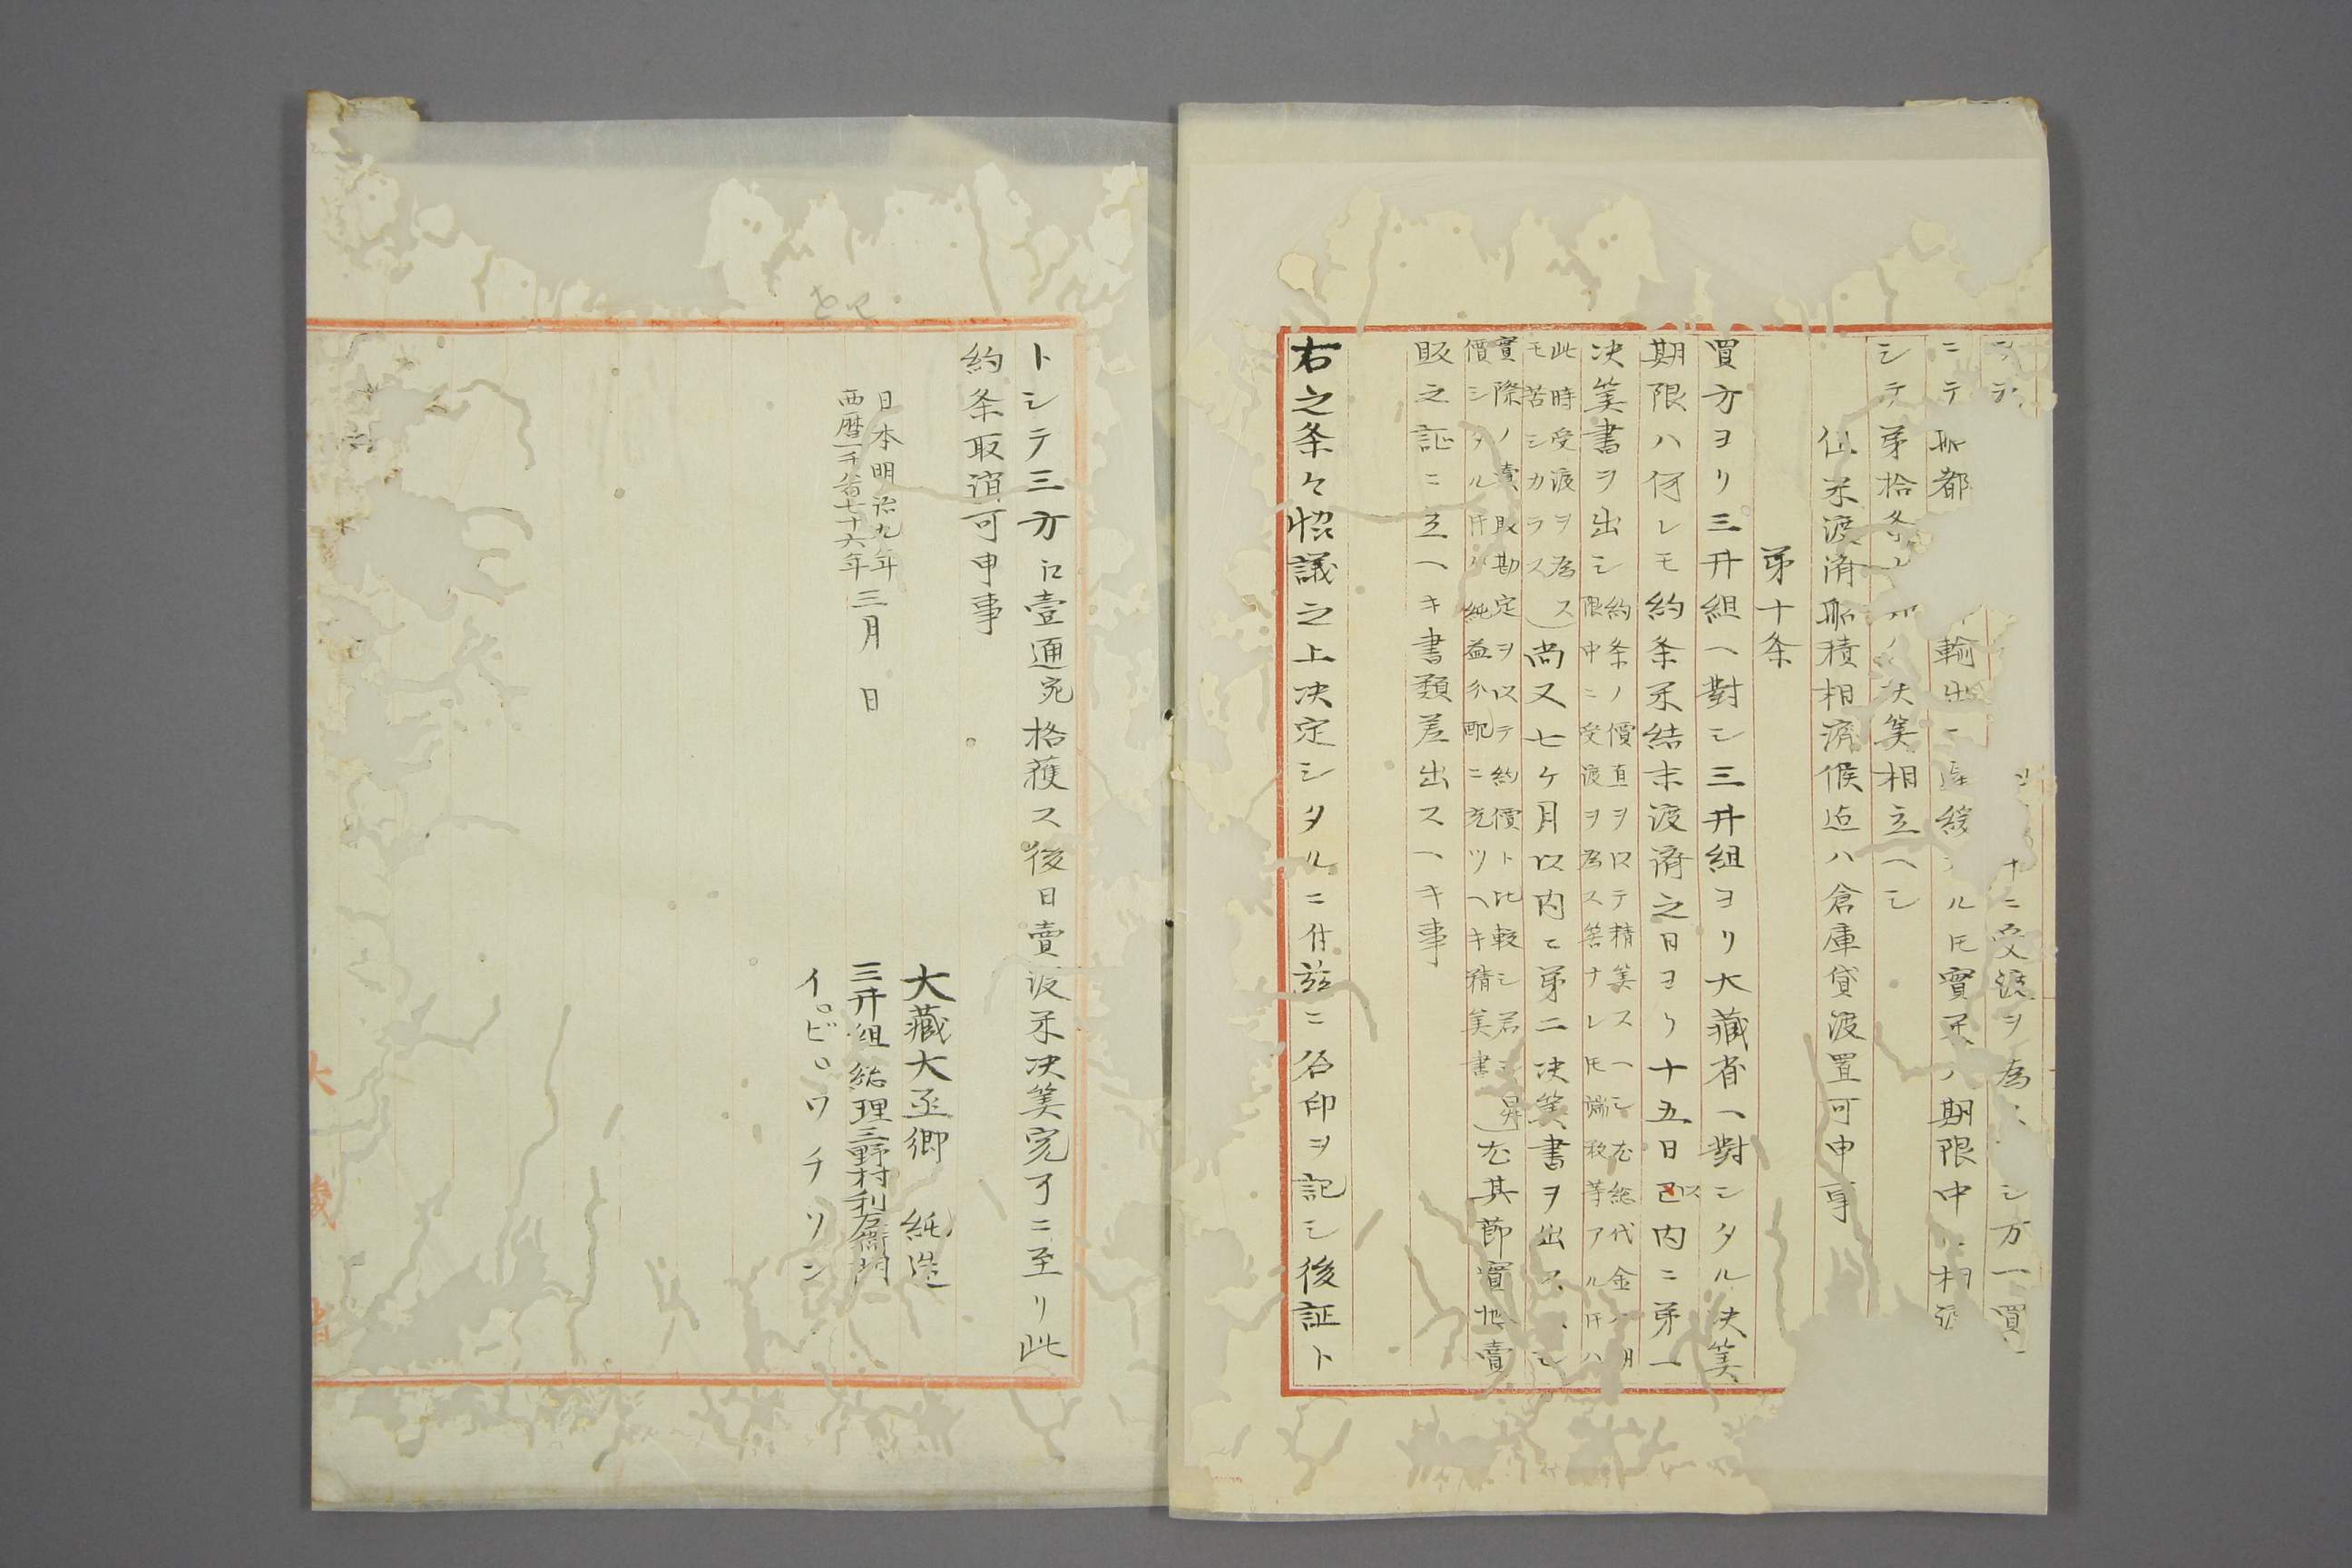 シテ
ニ受渡ヲ為
シ万一買
ニテ
都
輸出
ルモ實米ハ期限中
相
シテ第拾条
決算相立ヘシ
但米渡済船積相済候迄ハ倉庫貸渡置可申事
第十条
買方ヨリ三井組ヘ對シ三井組ヨリ大藏省ヘ對シタル决算
期限ハ何レモ約条米結末渡済之日ヨリ十五日内ニ第一
决算書ヲ出シ
約条ノ價直ヲ以テ精算スヘシ尤総代金ハ期
限中ニ受渡ヲ為ス筈ナレ𪜈端数等アル𪜈ハ
此時受渡ヲ為ス
モ苦シカラス
尚又七ケ月以内ニ第二决算書ヲ出スヘシ
實際ノ賣販勘定ヲ以テ約價ト比較シ若シ昇
價シタル𪜈ハ純益分配ニ充ツヘキ精算書
尤其節實地賣
販之証ニ立ヘキ書類差出スヘキ事
右之条々協議之上决定シタルニ付玆ニ名印ヲ記シ後証ト
トシテ三方江壹通宛格護ス後日賣渡米决算完了ニ至リ此
約条取消可申事
日本明治九年
西暦一千八百七十六年
三月 日
大藏大丞郷 純造
三井組総理三野村利左衛門
イ。ビ。ワチソン
大
藏
省